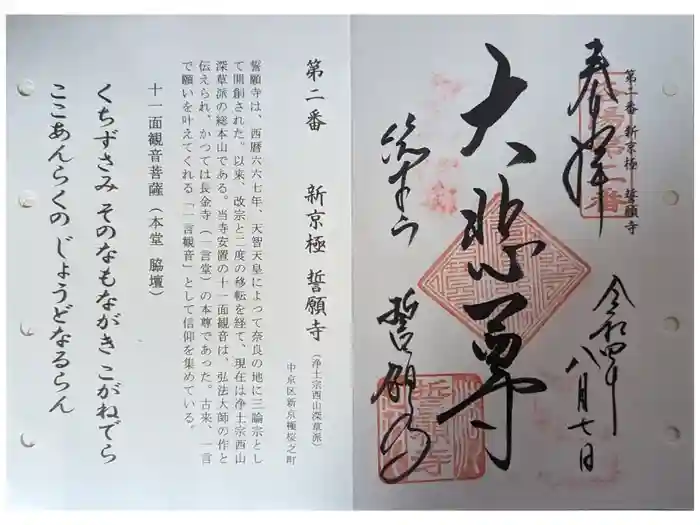 第二番 新京極 誓願寺
奉拝
令和四年
八月七日
大悲尊
誓願寺
第二番 新京極 誓願寺
(浄土宗西山深草派)
中京区新京極桜之町
誓願寺は、西暦六六七年、天智天皇によって奈良の地に三論宗とし
て開創された。以来、改宗と二度の移転を経て、現在は浄土宗西山
深草派の総本山である。当寺安置の十一面観音は、弘法大師の作と
伝えられ、かつては長金寺(一言堂)の本尊であった。古来、一言
で願いを叶えてくれる「一言観音」として信仰を集めている。
十一面観音菩薩(本堂 脇壇)
くちずさみ そのなもながき こがねでら
ここあんらくの じょうどなるらん